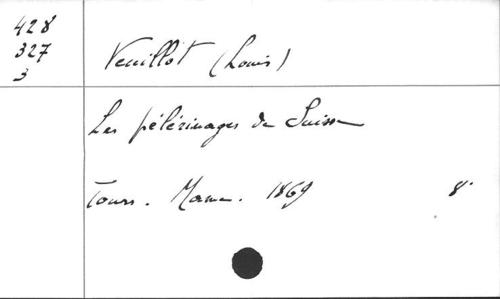 428
327
3
Veuillot (Louis)
Les pélérinages de Suisse
Tours. Mame. 1869 8°